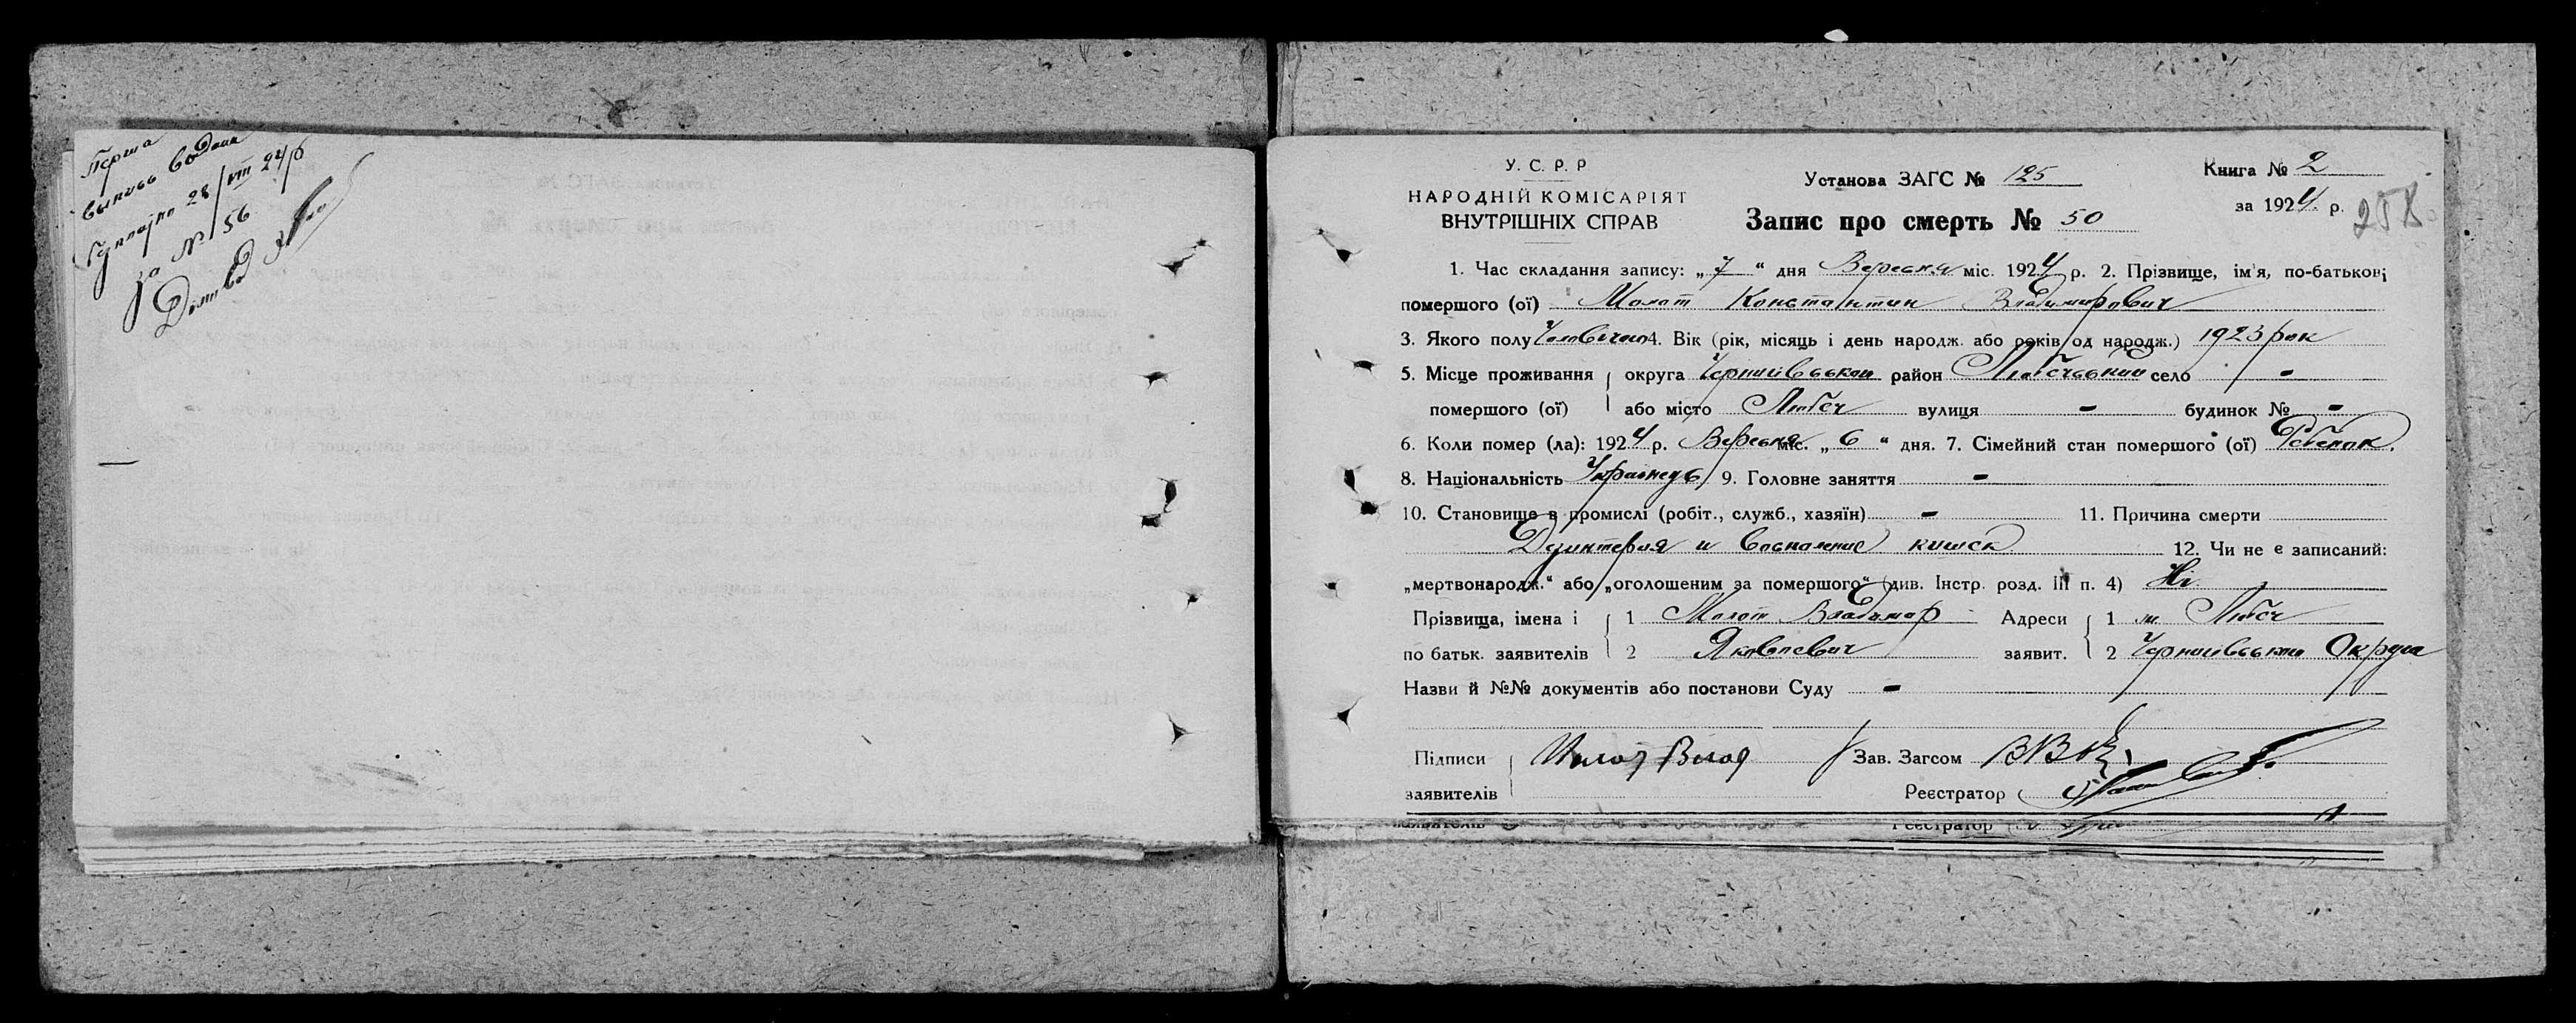 Перша
выпись водана
28/VIII 24 р
за № 56
У. С. Р. Р
НАРОДНІЙ КОМІСАРІЯТ
ВНУТРІШНІХ СПРАВ
Установа ЗАГС № 125
Запис про смерть № 50
Книга № 2
за 1924 р.
258
1. Час складання запису: „7“ дня Вересня міс. 1924 р. 2. Прізвище, ім'я, по-батькові
помершого (ої) Молот Константин Владимирович
3. Якого полу Чоловічого 4. Вік (рік, місяць і день народж. або років од народж.) 1923 рок
5. Місце проживання округа Чернигівськой район Любечський село -
помершого (ої) або місто Любеч вулиця - будинок № -
6. Коли помер (ла): 1924 р. Вересня міс. „6“ дня. 7. Сімейний стан помершого (ої) Ребенок.
8. Національність Украінець 9. Головне заняття -
10. Становище в промислі (робіт., служб., хазяїн) - 11. Причина смерти
Дезинтерия и воспаление кишек 12. Чи не є записаний:
„мертвонародж.“ або „оголошеним за помершого“ (див. Інстр. розд. III п. 4) Ні
Прізвища, імена і 1 Молот Владимир Адреси 1 м. Любеч
по батьк. заявителів 2 Яковлевич заявит. 2 Чернигівськои Округа
Назви й №№ документів або постанови Суду -
Підписи Молот Влад Зав. Загсом
заявителів Реєстратор
заявителів Реєстратор